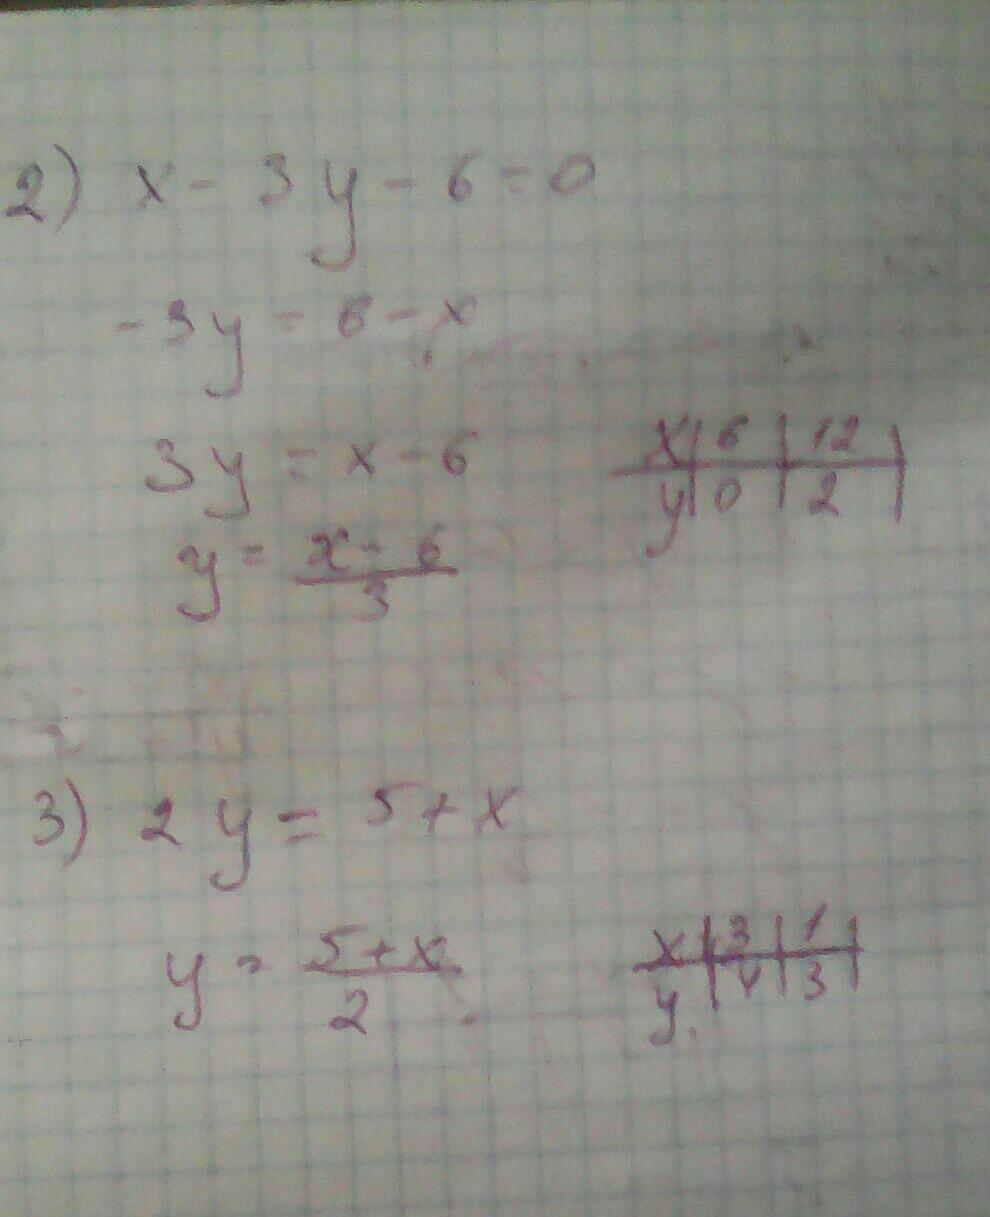 2) x - 3y - 6 = 0
-3y = 6 - x
3y = x - 6
x | 6 | 12 |
y = x - 6 / 3
y | 0 | 2 |
3) 2y = 5 + x
y = 5 + x / 2
x | 3 | 1 |
y | 4 | 3 |